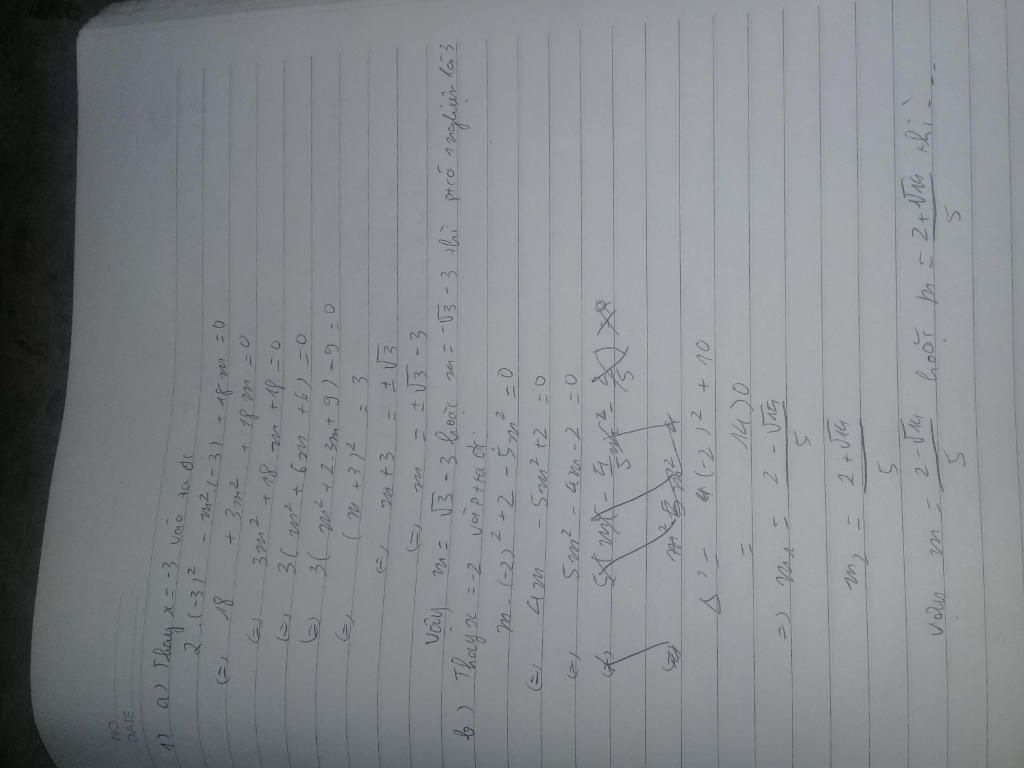 NO.
DATE
1) a) Thay x = -3 vào ta đc
2.(-3)² - m²(-3) + 18m = 0
(=) 18 + 3m² + 18m = 0
(=) 3m² + 18m + 18 = 0
(=) 3(m² + 6m + 6) = 0
(=) 3(m² + 2.3m + 9) - 9 = 0
(=) (m + 3)² = 3
(=) m + 3 = ±√3
(=) m = ±√3 - 3
Vậy m = √3 - 3 hoặc m = -√3 - 3 thì ptcó nghiệm là 3
b) Thay x = -2 vào pt ta đc
m.(-2)² + 2 - 5m² = 0
(=) 4m - 5m² + 2 = 0
(=) 5m² - 4m - 2 = 0
(=)
(=)
Δ' = (-2)² + 10
= 14 > 0
=) m₁ = 2 - √14 / 5
m₂ = 2 + √14 / 5
Vậy m = 2 - √14 / 5 hoặc m = 2 + √14 / 5 thì ...